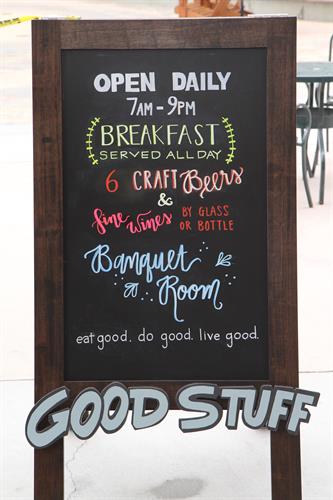 OPEN DAILY
7AM-9PM
BREAKFAST
SERVED ALL DAY
6 CRAFT Beers
&
fine Wines BY GLASS
OR BOTTLE
Banquet
Room
eat good. do good. live good.
GOOD STUFF